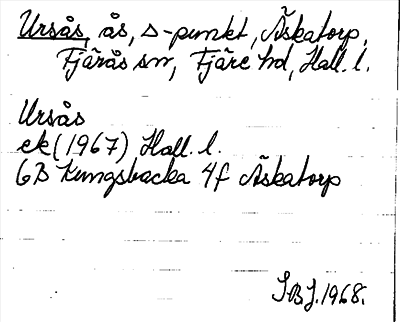 Ursås, ås, △-punkt, Äskatorp,
Fjärås sn, Fjäre hd, Hall. l.
Ursås
ek (1967) Hall. l.
6B Kungsbacka 4f Äskatorp
S.B.J. 1968.